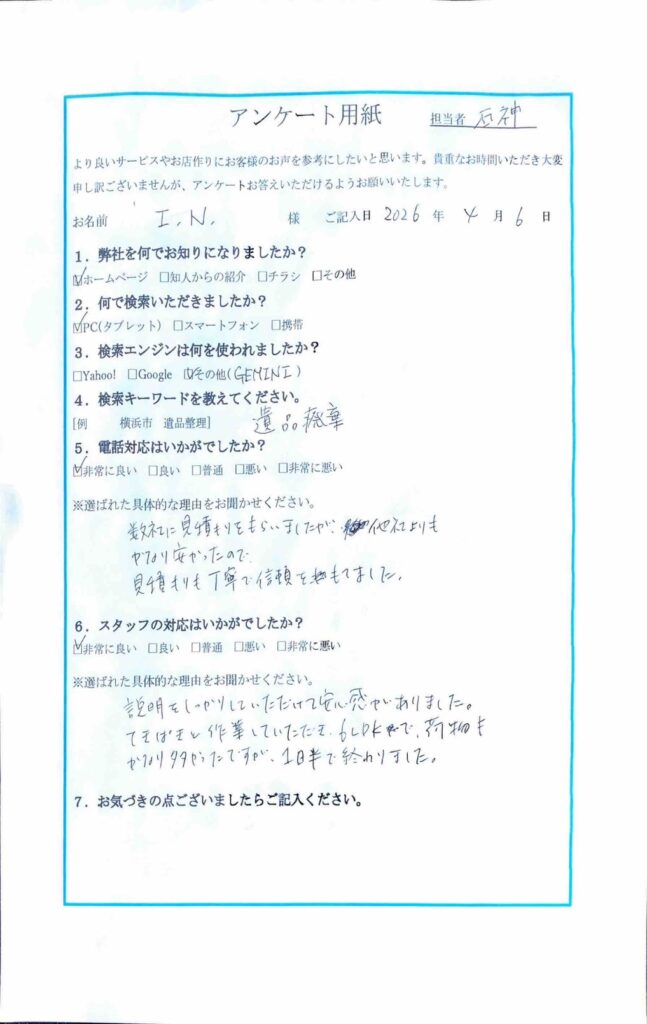 アンケート用紙 担当者 石神
より良いサービスやお店作りにお客様のお声を参考にしたいと思います。貴重なお時間いただき大変
申し訳ございませんが、アンケートお答えいただけるようお願いいたします。
お名前 I.N. 様 ご記入日 2026 年 4 月 6 日
1．弊社を何でお知りになりましたか？
☑ホームページ □知人からの紹介 □チラシ □その他
2．何で検索いただきましたか？
☑PC(タブレット) □スマートフォン □携帯
3．検索エンジンは何を使われましたか？
□Yahoo! □Google ☑その他(GEMINI)
4．検索キーワードを教えてください。
[例 横浜市 遺品整理] 遺品廃棄
5．電話対応はいかがでしたか？
☑非常に良い □良い □普通 □悪い □非常に悪い
※選ばれた具体的な理由をお聞かせください。
数社に見積もりをもらいましたが、他社よりも
かなり安かったので
見積もりも丁寧で信頼をもてました。
6．スタッフの対応はいかがでしたか？
☑非常に良い □良い □普通 □悪い □非常に悪い
※選ばれた具体的な理由をお聞かせください。
説明をしっかりしていただけて安心感がありました。
てきぱきと作業していただき、6LDKで、荷物も
かなり多かったですが、1日半で終わりました。
7．お気づきの点ございましたらご記入ください。